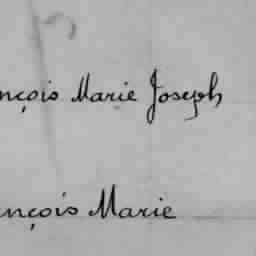 nçois Marie Joseph
ançois Marie